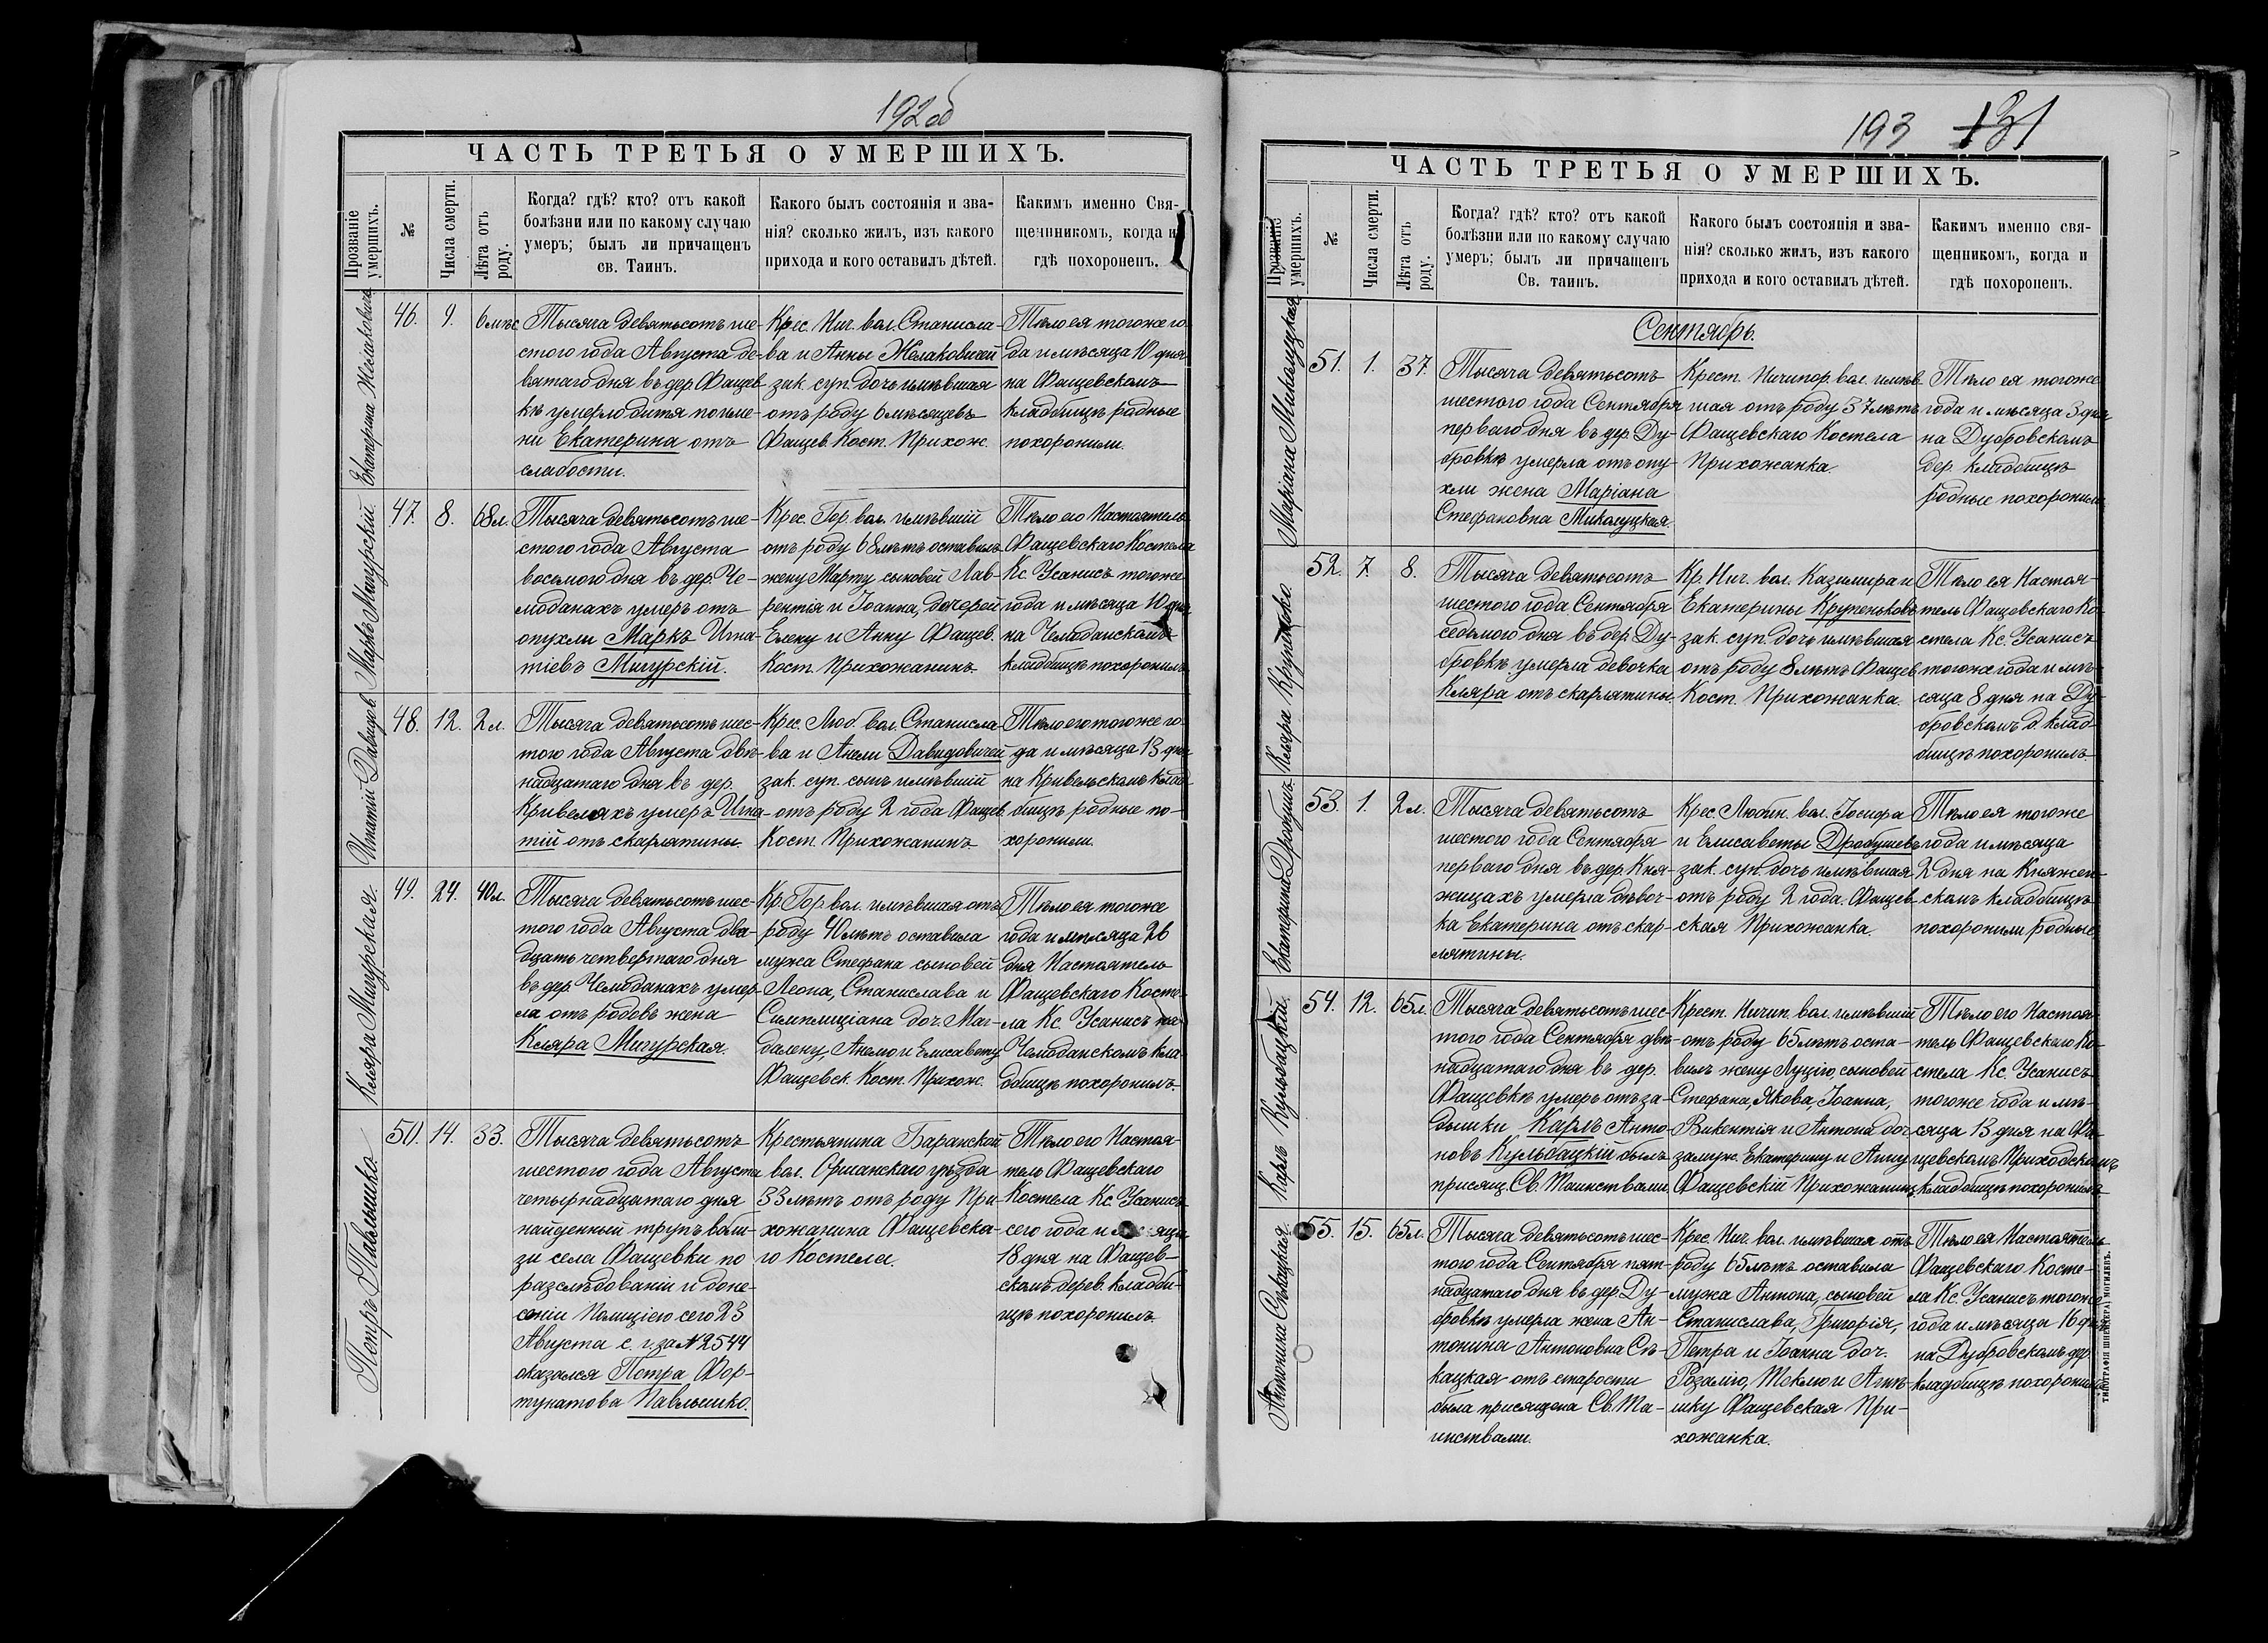 192об
ЧАСТЬ ТРЕТЬЯ О УМЕРШИХЪ.
Прозваніе умершихъ.
№
Числа смерти.
Лѣта отъ роду.
Когда? гдѣ? кто? отъ какой
болѣзни или по какому случаю
умеръ; былъ ли причащенъ
св. Таинъ.
Какого былъ состоянія и зва-
нія? сколько жилъ, изъ какого
прихода и кого оставилъ дѣтей.
Какимъ именно Свя-
щенникомъ, когда и
гдѣ похороненъ.
Екатерина Желаковичъ
46. 9. 6 мѣс
Тысяча девятьсотъ ше-
стого года Августа де-
вятаго дня въ дер. Фащев
кѣ умерло дитя по име-
ни Екатерина отъ
слабости.
Крес. Нич. вол. Станисла-
ва и Анны Желаковичей
зак. суп. дочь имѣвшая
отъ роду 6 мѣсяцевъ
Фащев. Кост. Прихож.
Тѣло ея тогоже го-
да и мѣсяца 10 дня
на Фащевскомъ
кладбищѣ родные
похоронили.
Маркъ Мигурскій
47. 8. 68 л.
Тысяча девятьсотъ ше-
стого года Августа
восьмого дня въ дер. Че-
моданахъ умеръ отъ
опухли Маркъ Игна-
тіевъ Мигурскій.
Крес. Гор. вол. имѣвшій
отъ роду 68 лѣтъ оставилъ
жену Марту сыновей Лав-
рентія и Іоанна, дочерей
Елену и Анну Фащев.
Кост. Прихожанинъ.
Тѣло его Настоятель
Фащевскаго Костела
Кс. Усанисъ тогоже
года и мѣсяца 10 дня
на Чемоданскомъ
кладбищѣ похоронилъ
Игнатій Давидов
48. 12. 2 л.
Тысяча девятьсотъ шес-
того года Августа двѣ-
надцатаго дня въ дер.
Кривеляхъ умеръ Игна-
тій отъ скарлатины.
Крес. Люб. вол. Станисла-
ва и Анели Давидовичей
зак. суп. сынъ имѣвшій
отъ роду 2 года Фащев.
Кост. Прихожанинъ.
Тѣло его тогоже го-
да и мѣсяца 13 дня
на Кривельскомъ клад-
бищѣ родные по-
хоронили.
Кляра Мигурская.
49. 24. 40 л.
Тысяча девятьсотъ шес-
того года Августа два-
дцать четвертаго дня
въ дер. Чемоданахъ умер-
ла отъ родовъ жена
Кляра Мигурская.
Кр. Гор. вол. имѣвшая отъ
роду 40 лѣтъ оставила
мужа Стефана сыновей
Леона, Станислава и
Симплиціана доч. Маг-
далену, Анелю и Елисавету
Фащевск. Кост. Прихож.
Тѣло ея тогоже
года и мѣсяца 26
дня Настоятель
Фащевскаго Косте-
ла Кс. Усанисъ на
Чемоданскомъ кла-
дбищѣ похоронилъ.
Петръ Павлышко
50. 14. 33.
Тысяча девятьсотъ
шестого года Августа
четырнадцатаго дня
найденный трупъ вбли-
зи села Фащевки по
разслѣдованіи и доне-
сеніи Полиціею сего 23
Августа с. г. за № 2544
оказался Петра Фор-
тунатова Павлышко.
Крестьянина Баранской
вол. Оршанскаго уѣзда
33 лѣтъ отъ роду При-
хожанина Фащевска-
го Костела.
Тѣло его Настоя-
тель Фащевскаго
Костела Кс. Усанисъ
сего года и мѣсяца
18 дня на Фащев-
скомъ дерев. кладби-
щѣ похоронилъ.
193 131
ЧАСТЬ ТРЕТЬЯ О УМЕРШИХЪ.
Прозваніе умершихъ.
№
Числа смерти.
Лѣта отъ роду.
Когда? гдѣ? кто? отъ какой
болѣзни или по какому случаю
умеръ; былъ ли причащенъ
Св. таинъ.
Какого былъ состоянія и зва-
нія? сколько жилъ, изъ какого
прихода и кого оставилъ дѣтей.
Какимъ именно свя-
щенникомъ, когда и
гдѣ похороненъ.
Сентябрь.
Маріана Миколуцкая
51. 1. 37.
Тысяча девятьсотъ
шестого года Сентября
перваго дня въ дер. Ду-
бровкѣ умерла отъ опу-
хли жена Маріана
Стефановна Миколуцкая.
Крест. Ничипор. вол. имѣв-
шая отъ роду 37 лѣтъ
Фащевскаго Костела
Прихожанка.
Тѣло ея тогоже
года и мѣсяца 3 дня
на Дубровскомъ
дер. кладбищѣ
родные похоронили.
Кляра Крупенько
52. 7. 8.
Тысяча девятьсотъ
шестого года Сентября
седьмого дня въ дер. Ду-
бровкѣ умерла девочка
Кляра отъ скарлятины.
Кр. Нич. вол. Казимира и
Екатерины Крупеньковъ
зак. суп. дочь имѣвшая
отъ роду 8 лѣтъ Фащев.
Кост. Прихожанка.
Тѣло ея Настоя-
тель Фащевскаго Ко-
стела Кс. Усанисъ
тогоже года и мѣ-
сяца 8 дня на Ду-
бровскомъ д. клад-
бищѣ похоронилъ.
Екатерина Дробушъ
53. 1. 2 л.
Тысяча девятьсотъ
шестого года Сентября
перваго дня въ дер. Кня-
жицахъ умерла дѣвоч-
ка Екатерина отъ скар-
лятины.
Крес. Любин. вол. Іосифа
и Елисаветы Дробушевъ
зак. суп. дочь имѣвшая
отъ роду 2 года. Фащев-
ская Прихожанка.
Тѣло ея тогоже
года и мѣсяца
2 дня на Княжен-
скомъ кладбищѣ
похоронили родные.
Карлъ Кульбацкій.
54. 12. 65 л.
Тысяча девятьсотъ шес-
того года Сентября двѣ-
надцатаго дня въ дер.
Фащевкѣ умеръ отъ за-
дышки Карлъ Анто-
новъ Кульбацкій былъ
присящ. Св. Таинствами.
Крест. Ничип. вол. имѣвшій
отъ роду 65 лѣтъ оста-
вилъ жену Луцію, сыновей
Стефана, Якова, Іоанна,
Викентія и Антона доч.
замуж. Екатерину и Анну
Фащевскій Прихожанинъ
Тѣло его Настоя-
тель Фащевскаго Ко-
стела Кс. Усанисъ
тогоже года и мѣ-
сяца 13 дня на Фа-
щевскомъ Приходскомъ
кладбищѣ похоронилъ
Антонина Спъвацкая.
55. 15. 65 л.
Тысяча девятьсотъ шес-
того года Сентября пят-
надцатаго дня въ дер. Ду-
бровкѣ умерла жена Ан-
тонина Антоновна Спѣ-
кацкая отъ старости
была присящена Св. Та-
инствами.
Крес. Нич. вол. имѣвшая отъ
роду 65 лѣтъ оставила
мужа Антона, сыновей
Станислава, Григорія,
Петра и Іоанна доч.
Розалію, Теклю и Агнѣ-
шку Фащевская При-
хожанка.
Тѣло ея Настоятель
Фащевскаго Косте-
ла Кс. Усанисъ тогоже
года и мѣсяца 16 дня
на Дубровскомъ дер.
кладбищѣ похоронилъ
ТИПОГРАФІЯ ШНЕЙДЕРА МОГИЛЕВЪ.